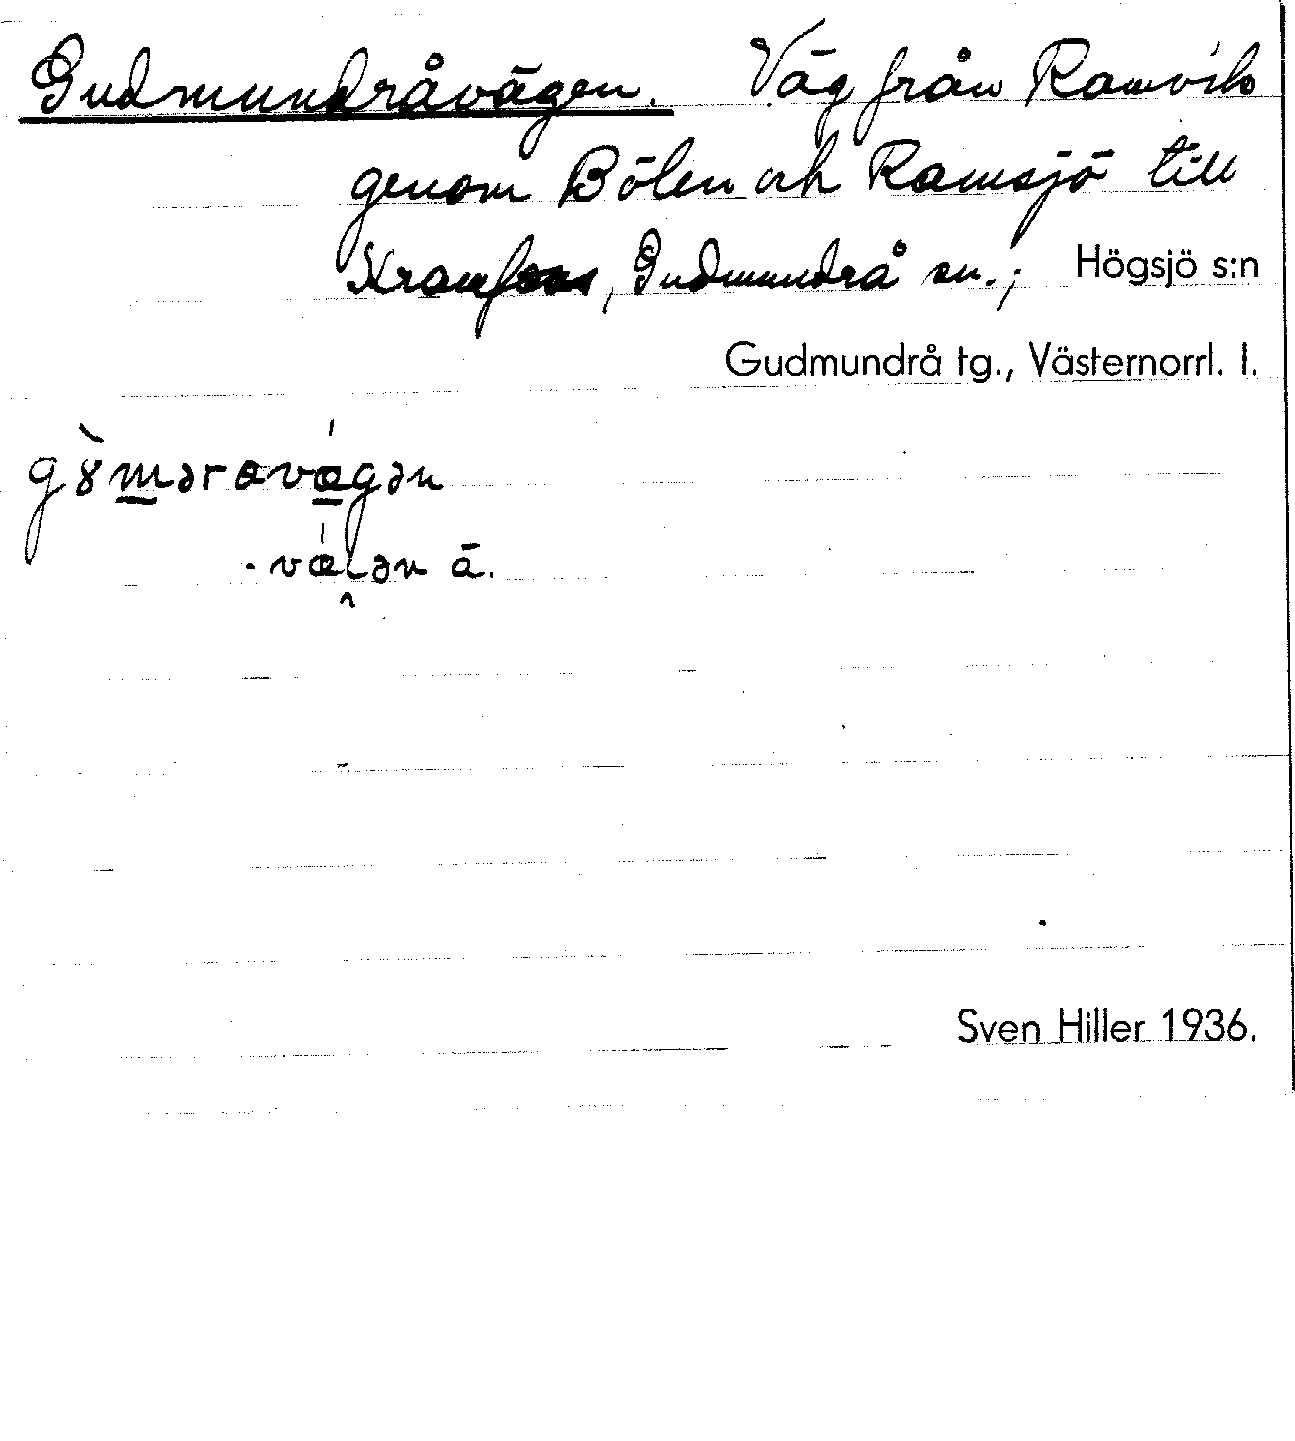 Gudmundråvägen. Väg från Ramvik
genom Bölen och Ramsjö till
Kramfors, Gudmundrå sn.; Högsjö s:n
Gudmundrå tg., Västernorrl. l.
gȣ̀məravǽgən
-vǽlən ä.
Sven Hiller 1936.